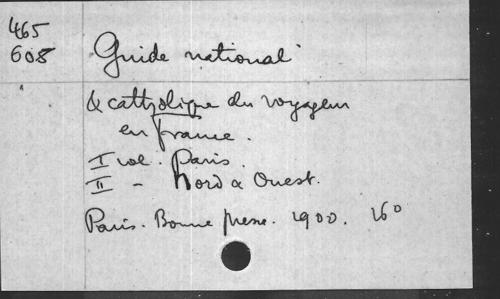 465
608
Guide national
& catholique du voyageur
en France.
I vol. Paris.
II - Nord & Ouest.
Paris. Bonne presse. 1900. 16°